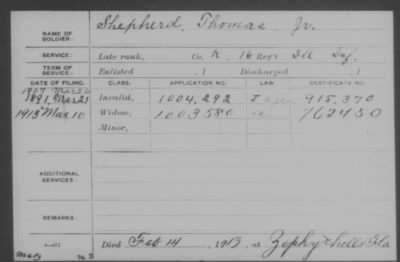 NAME OF SOLDIER: Shepherd, Thomas Jr.
SERVICE: Late rank, Co. K, 16 Reg't Ill Inf.
TERM OF SERVICE: Enlisted , 1 Discharged , 1
DATE OF FILING. CLASS. APPLICATION NO. LAW. CERTIFICATE NO.
1891, Mar 21 Invalid, 1004,292 915,370
1913 Mar 10 Widow, 1003580 762430
Minor,
ADDITIONAL SERVICES:
REMARKS:
Died Feb 14, 1913, at Zephyrhills Fla